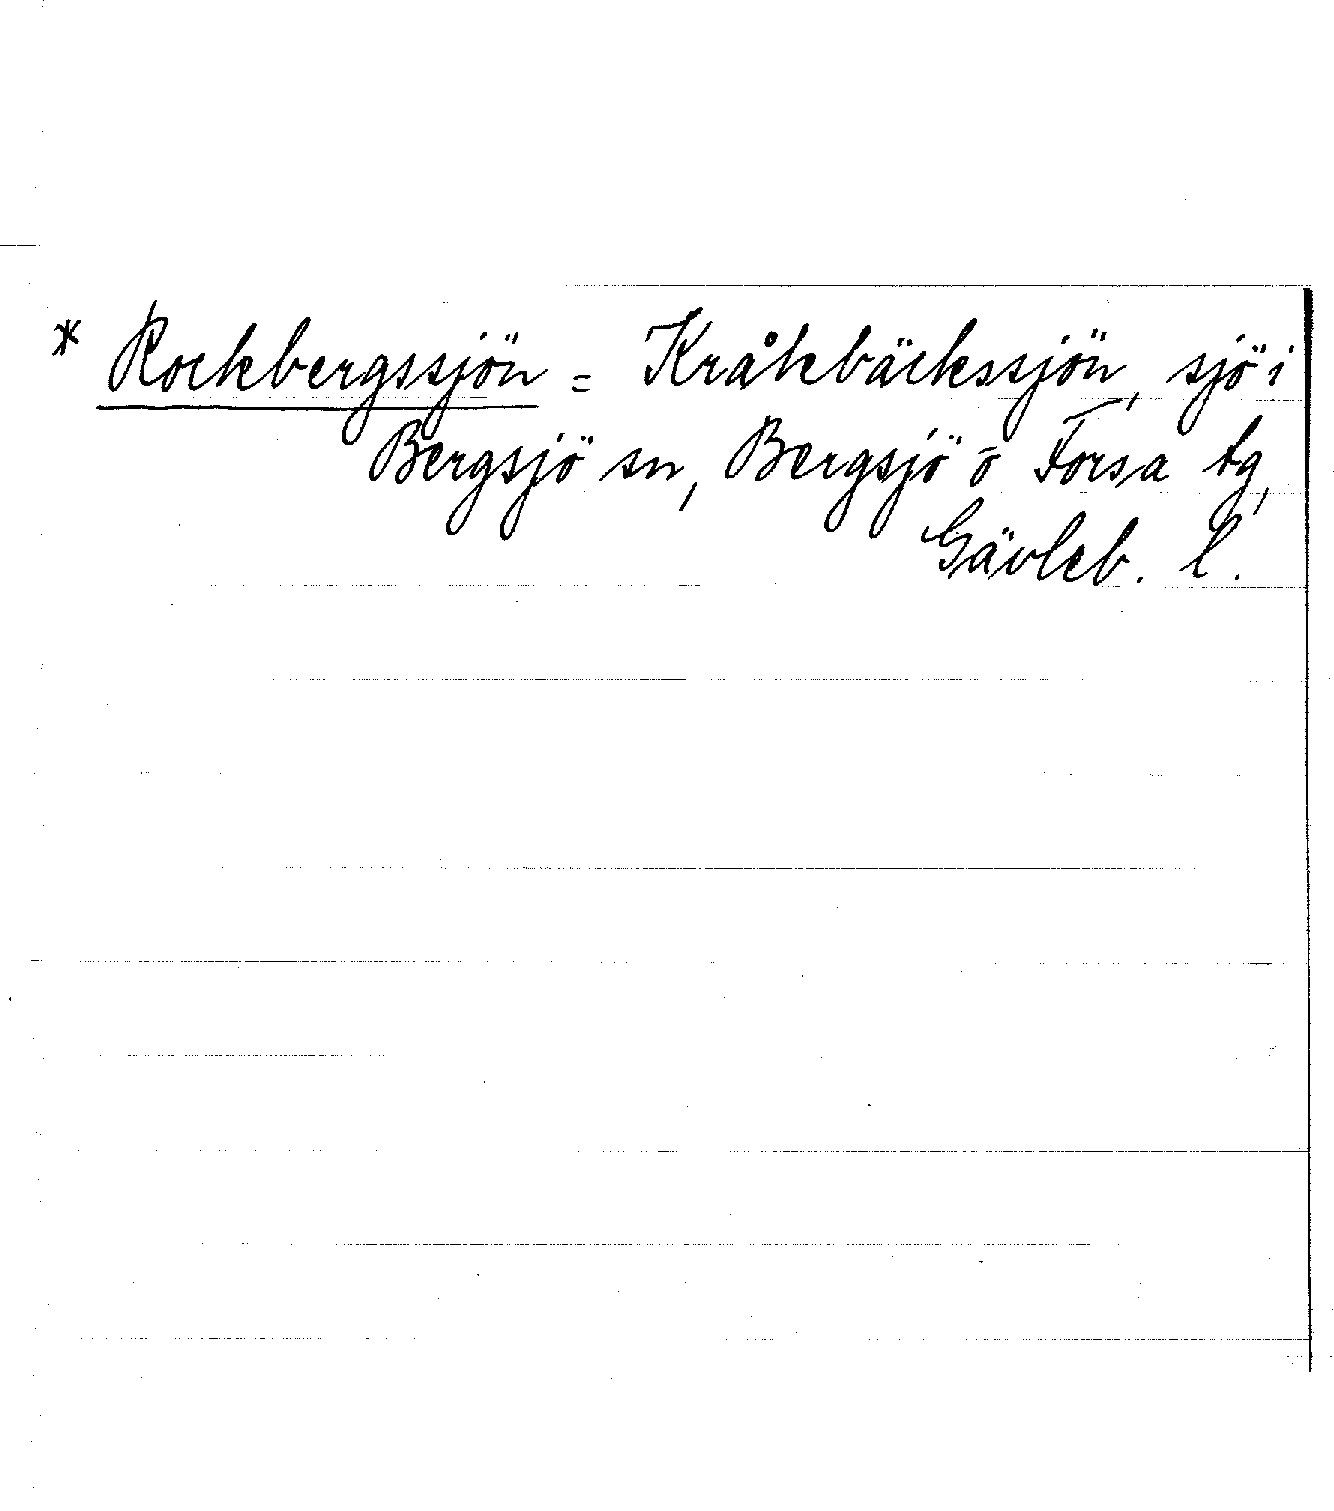 * Rockbergssjön = Kråkbäckssjön, sjö i
Bergsjö sn, Bergsjö o Forsa tg,
Gävleb. l.